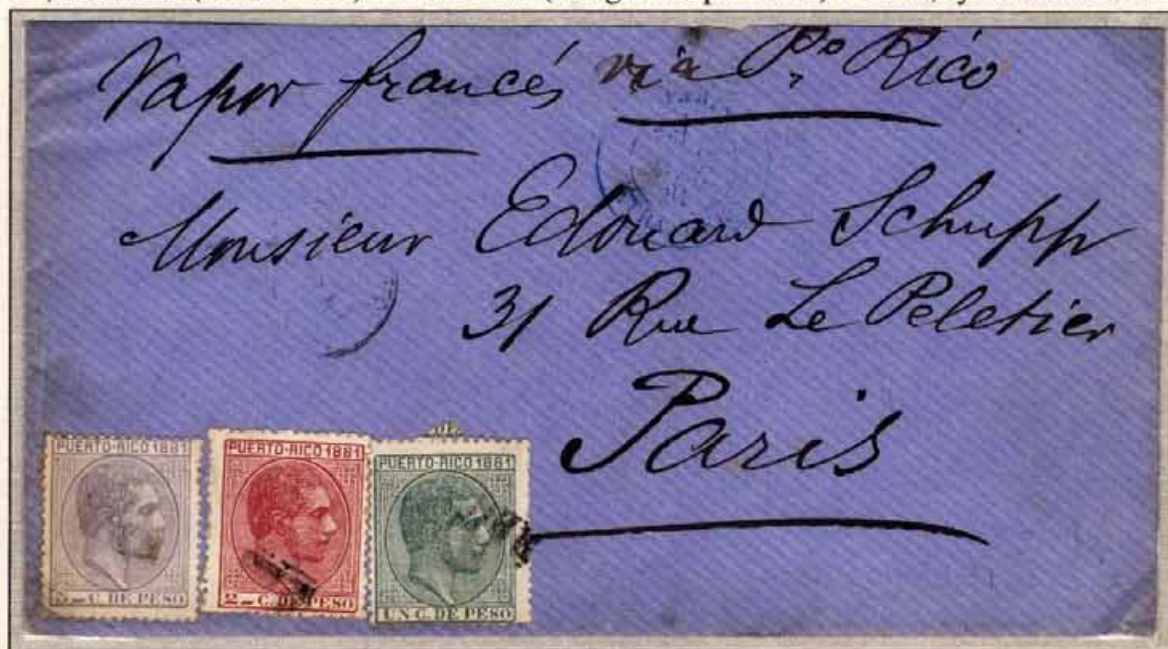 Vapor francés via Pto Rico
Monsieur Edouard Schupp
31 Rue Le Peletier
Paris
PUERTO-RICO 1881
C. DE PESO
PUERTO-RICO 1881
2 C. DE PESO
PUERTO-RICO 1881
UN C. DE PESO